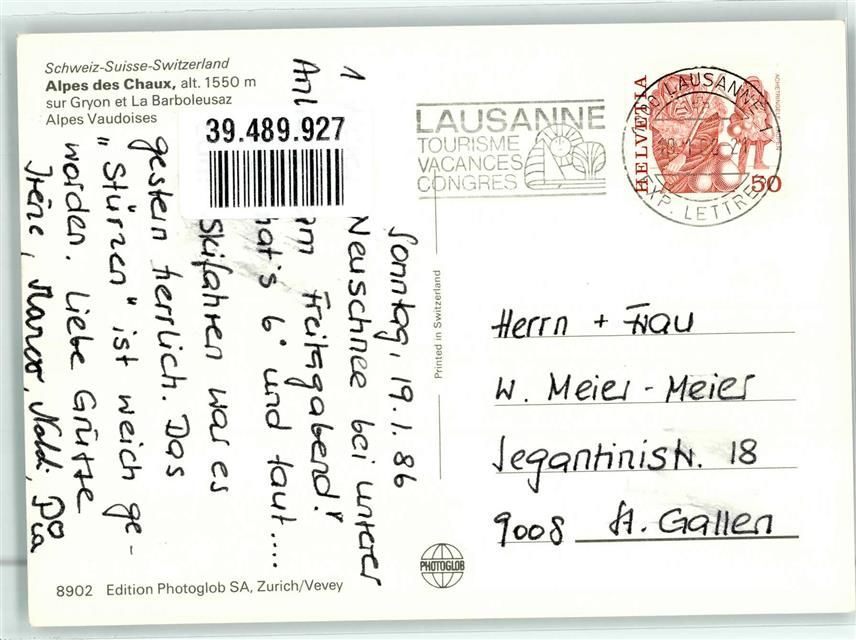 Schweiz-Suisse-Switzerland
Alpes des Chaux, alt. 1550 m
sur Gryon et La Barboleusaz
Alpes Vaudoises
39.489.927
LAUSANNE
TOURISME
VACANCES
CONGRES
LAUSANNE 1
EXP. LETTRES
HELVETIA
50
Sonntag, 19.1.86
1
Neuschnee bei unserer
am Freitagabend!
hat's 6° und taut....
Skifahren war es
gestern herrlich. Das
"Stürzen" ist weich ge-
worden. Liebe Grüsse
Irène, Marco, Noldi, Pia
Printed in Switzerland
Herrn + Frau
W. Meier-Meier
Segantinistr. 18
9008 St. Gallen
PHOTOGLOB
8902 Edition Photoglob SA, Zurich/Vevey